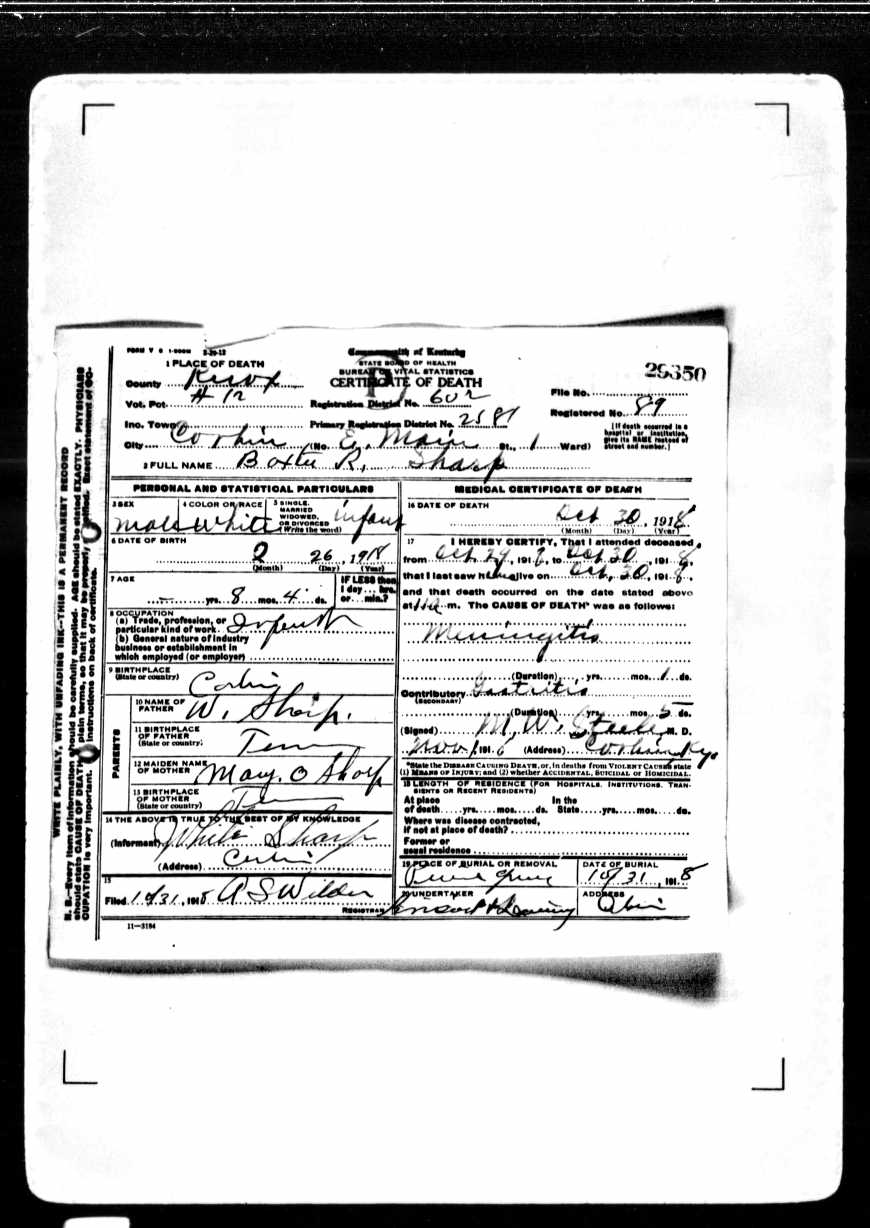 FORM V S 1-500M 3-20-12
Commonwealth of Kentucky
STATE BOARD OF HEALTH
BUREAU OF VITAL STATISTICS
CERTIFICATE OF DEATH
29350
1 PLACE OF DEATH
County Knox
Vot. Pct. # 12
Registration District No. 602
File No.
Inc. Town
Primary Registration District No. 2581
Registered No. 89
City Corbin (No. E. Main St., 1 Ward)
[If death occurred in a hospital or institution, give its NAME instead of street and number.]
2 FULL NAME Baxter R. Sharp
PERSONAL AND STATISTICAL PARTICULARS
3 SEX Male
4 COLOR OR RACE White
5 SINGLE, MARRIED WIDOWED, OR DIVORCED (Write the word) infant
6 DATE OF BIRTH
2 26, 1918
(Month) (Day) (Year)
7 AGE
yrs. 8 mos. 4 ds.
IF LESS than 1 day hrs. or min.?
8 OCCUPATION
(a) Trade, profession, or particular kind of work
(b) General nature of industry business or establishment in which employed (or employer)
9 BIRTHPLACE
(State or country) Corbin
PARENTS
10 NAME OF FATHER W. Sharp.
11 BIRTHPLACE OF FATHER (State or country) Tenn
12 MAIDEN NAME OF MOTHER Mary O Sharp
13 BIRTHPLACE OF MOTHER (State or country) Tenn
14 THE ABOVE IS TRUE TO THE BEST OF MY KNOWLEDGE
(Informant) White Sharp
(Address) Corbin
15
Filed 10/31, 1918 A S Wilder
REGISTRAR
11—3184
MEDICAL CERTIFICATE OF DEATH
16 DATE OF DEATH
Oct 30, 1918
(Month) (Day) (Year)
17 I HEREBY CERTIFY, That I attended deceased
from Oct. 29, 1918, to Oct 30, 1918,
that I last saw him alive on Oct. 30, 1918,
and that death occurred on the date stated above
at m. The CAUSE OF DEATH* was as follows:
Meningitis
(Duration) yrs. mos. 1 ds.
Contributory Gastritis
(SECONDARY)
(Duration) yrs. mos. 5 ds.
(Signed) M. W. Steele M. D.
Nov 1 191 (Address) Corbin Ky.
*State the DISEASE CAUSING DEATH, or, in deaths from VIOLENT CAUSES state
(1) MEANS OF INJURY; and (2) whether ACCIDENTAL, SUICIDAL or HOMICIDAL.
18 LENGTH OF RESIDENCE (FOR HOSPITALS, INSTITUTIONS, TRANSIENTS OR RECENT RESIDENTS)
At place of death yrs. mos. ds. In the State yrs. mos. ds.
Where was disease contracted,
if not at place of death?
Former or
usual residence
19 PLACE OF BURIAL OR REMOVAL
DATE OF BURIAL
10/31, 1918
20 UNDERTAKER
ADDRESS
WRITE PLAINLY, WITH UNFADING INK—THIS IS A PERMANENT RECORD
N. B.—Every item of information should be carefully supplied. AGE should be stated EXACTLY. PHYSICIANS
should state CAUSE OF DEATH in plain terms, so that it may be properly classified. Exact statement of OC-
CUPATION is very important. See instructions on back of certificate.